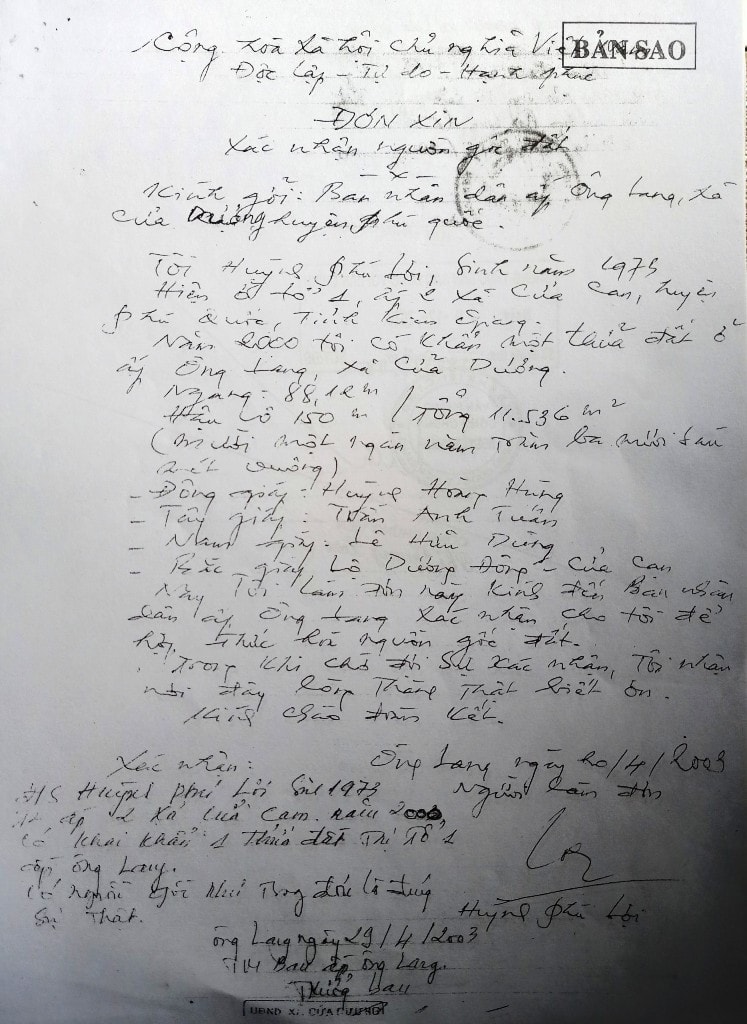 Cộng hòa xã hội chủ nghĩa Việt
BẢN SAO
Độc lập - Tự do - Hạnh phúc
ĐƠN XIN
Xác nhận nguồn gốc đất
Kính gởi: Ban nhân dân ấp Ông Lang, xã
Cửa Dương huyện Phú Quốc.
Tôi Huỳnh Phú Lợi, Sinh năm 1973
Hiện ở tổ 1, ấp 2 xã Cửa Cạn, huyện
Phú Quốc, Tỉnh Kiên Giang.
Năm 2000 tôi có khẩn một thửa đất ở
ấp Ông Lang, xã Cửa Dương.
Ngang: 88,12m
Hậu 150 m / Tổng 11.536 m²
(mười một ngàn năm trăm ba mươi sáu
mét vuông)
- Đông giáp: Huỳnh Hoàng Hùng
- Tây giáp: Trần Anh Tuấn
- Nam giáp: Lê Hữu Dũng
- Bắc giáp Lộ Dương Đông - Cửa Cạn
Nay Tôi làm đơn này Kính đến Ban nhân
dân ấp Ông Lang xác nhận cho tôi để
hợp thức hoá nguồn gốc đất.
Trong khi chờ đợi Sự xác nhận, Tôi nhận
nơi đây lòng Thành Thật biết ơn.
Kính chào đoàn kết.
Ông Lang ngày 20/4/2003
Người làm đơn
Huỳnh Phú Lợi
Xác nhận:
Huỳnh Phú Lợi Sn 1973
ấp 2 xã Cửa Cạn. năm 2000
có khai khẩn 1 thửa đất Tại Tổ 1
ấp Ông Lang.
Có nguồn gốc như Trong đơn là đúng
Sự Thật.
Ông Lang ngày 29/4/2003
TM Ban ấp Ông Lang.
Trưởng ban
UBND XÃ CỬA DƯƠNG